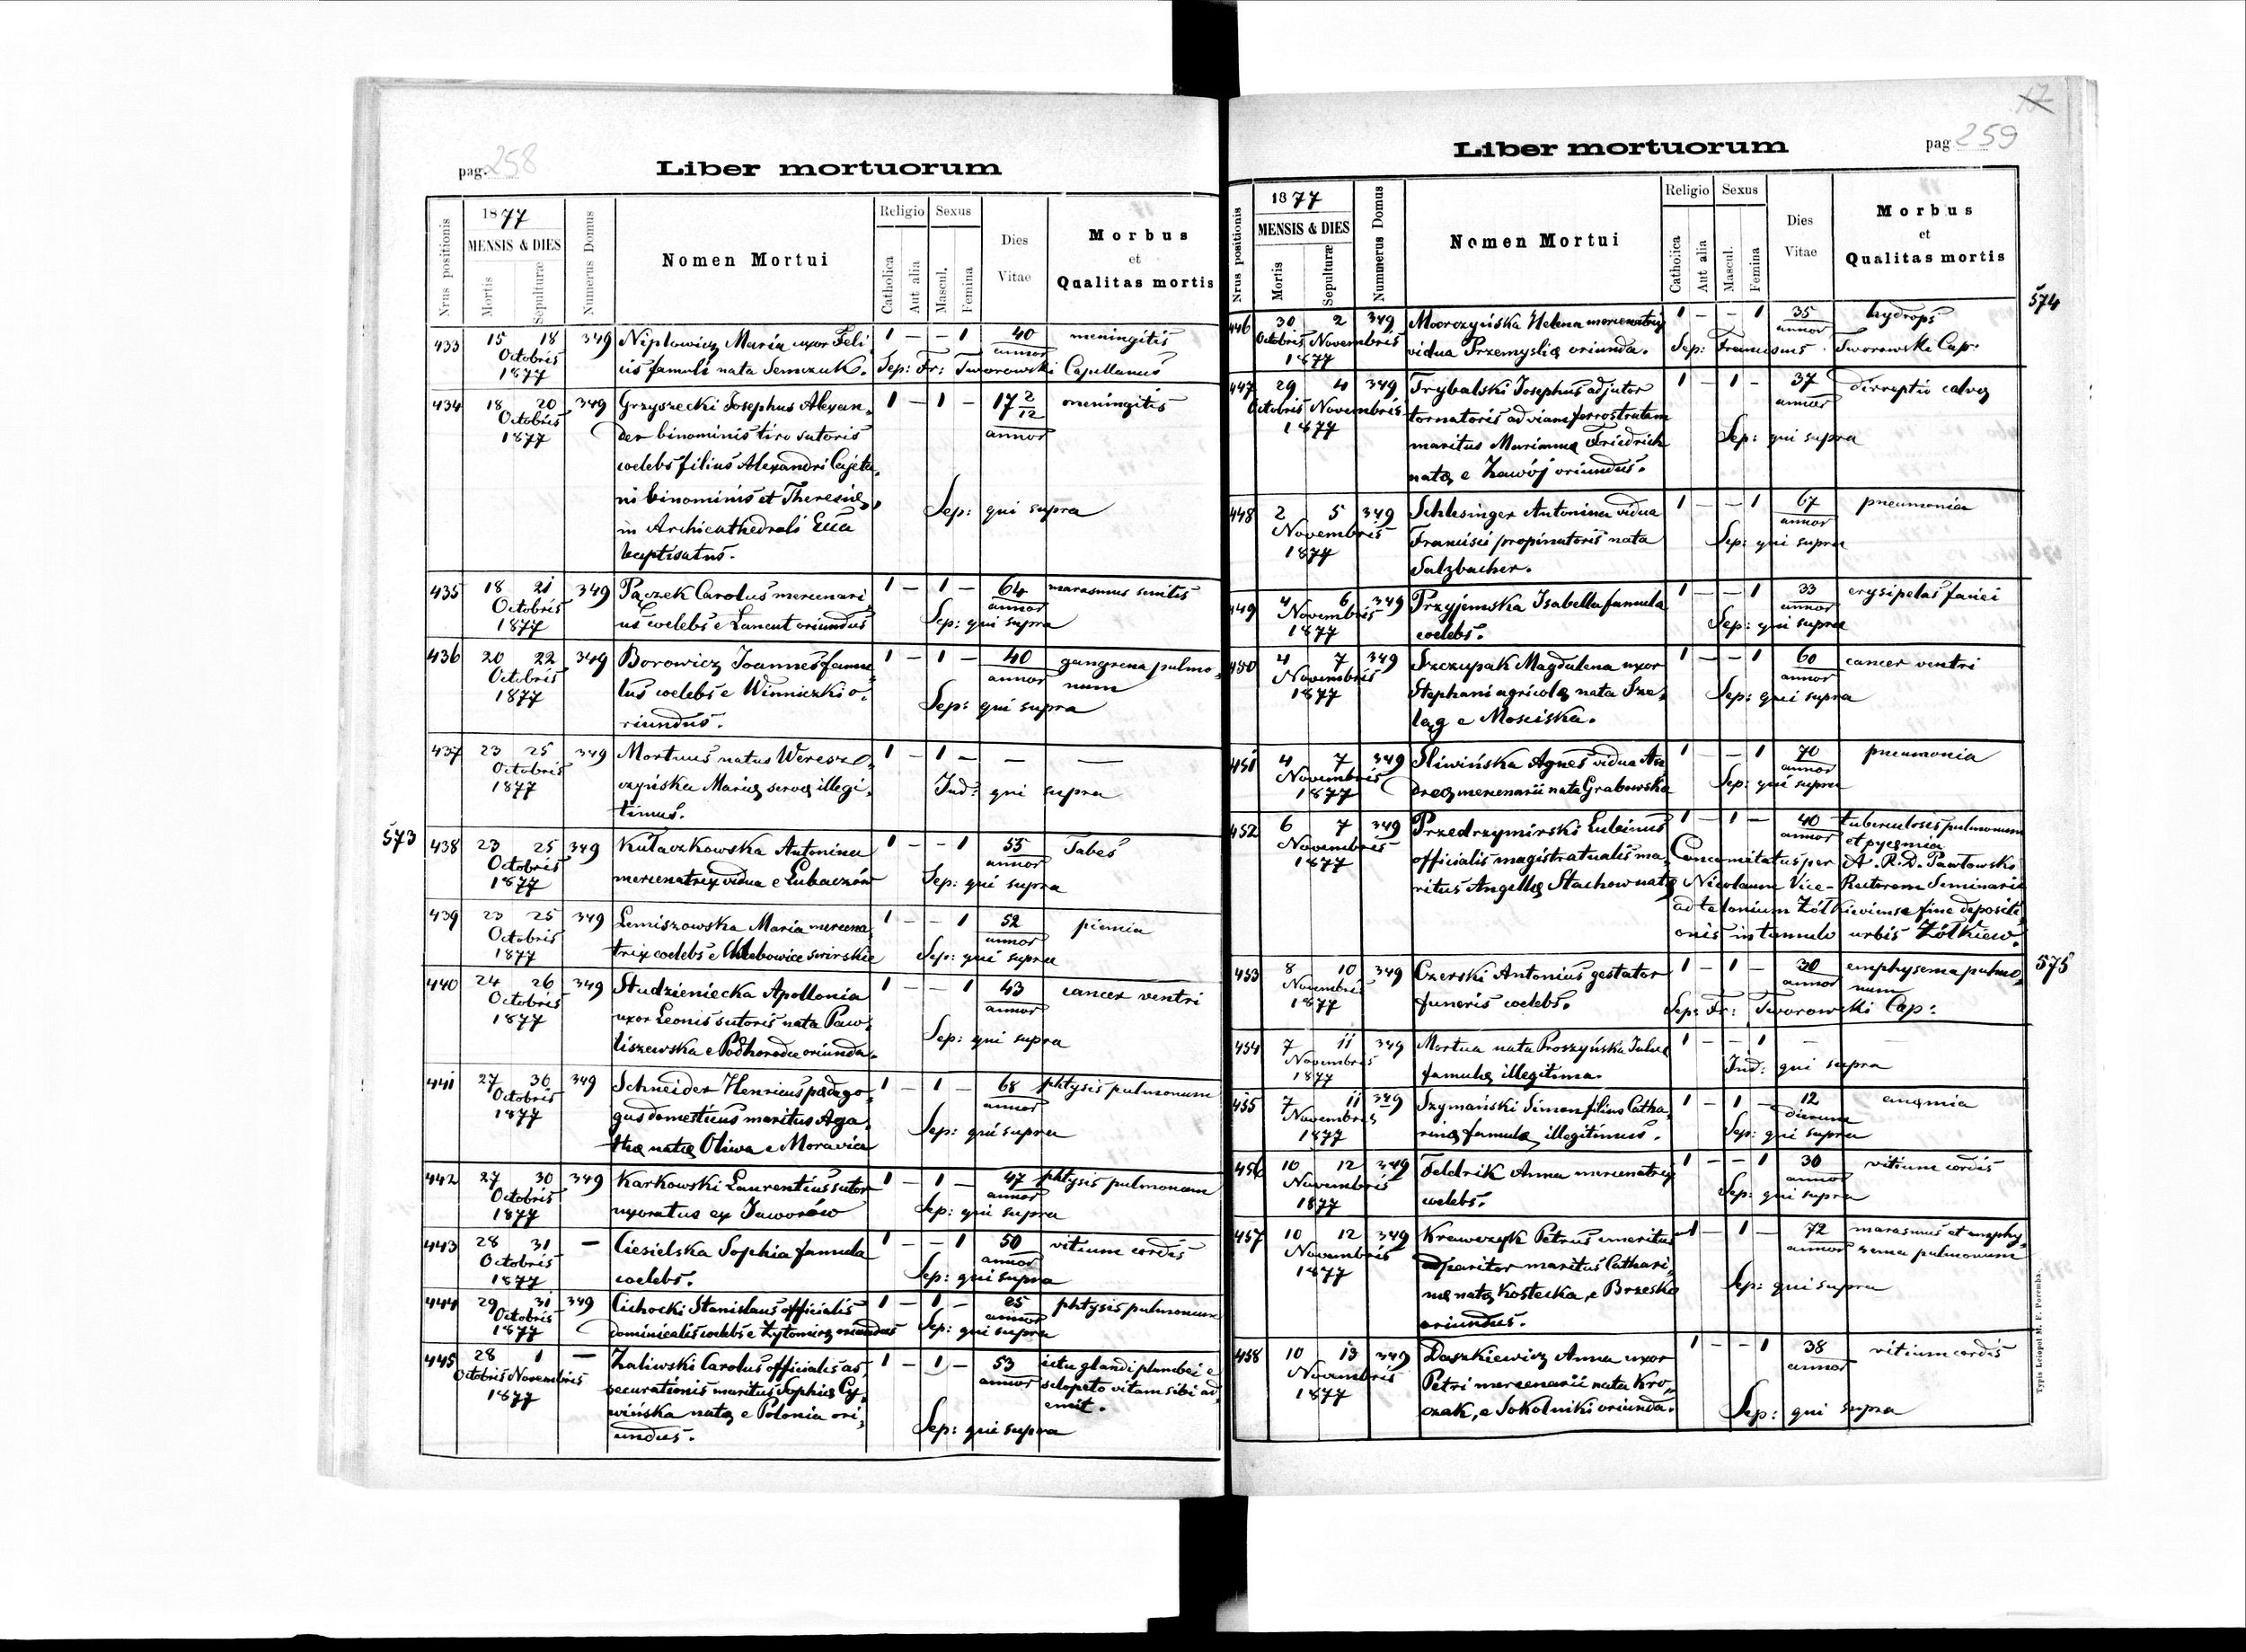 pag. 258
Liber mortuorum
Nrus positionis
1877
MENSIS & DIES
Mortis
Sepulturæ
Numerus Domus
Nomen Mortui
Religio
Catholica
Aut alia
Sexus
Mascul.
Femina
Dies
Vitae
Morbus
et
Qualitas mortis
433 15 18 349 Niplowicz Maria uxor Feli 1 — — 1 40 meningitis
Octobris annor
1877 cis famuli nata Semczuk. Sep: Fr: Tworowski Capellanus
434 18 20 349 Grzyszecki Josephus Alexan, 1 — 1 — 17 2/12 meningitis
Octobris der binominis tiro sutoris annor
1877 coelebs filius Alexandri Cajeta,
ni binominis et Theresiæ, Sep: qui supra
in Archicathedrali Ecca
baptisatus.
435 18 21 349 Pączek Carolus mercenari 1 — 1 — 64 marasmus senilis
Octobris annor
1877 us coelebs e Lancut oriundus Sep: qui supra
436 20 22 349 Borowicz Joannes famu 1 — 1 — 40 gangrena pulmo,
Octobris lus coelebs e Winniczki o, annor num
1877 riundus. Sep: qui supra
437 23 25 349 Mortuus natus Weresz 1 — 1 — — —
Octobris czyńska Mariæ servæ illegi, Ind: qui supra
1877 timus.
573
438 23 25 349 Kułaczkowska Antonina 1 — — 1 55 Tabes
Octobris mercenatrix vidua e Lubaczów annor
1877 Sep: qui supra
439 23 25 349 Lemiszowska Maria mercena 1 — — 1 52 piemia
Octobris annor
1877 trix coelebs e Chlebowice swirskie Sep: qui supra
440 24 26 349 Studzieniecka Apollonia 1 — — 1 43 cancer ventri
Octobris uxor Leonis sutoris nata Paw, annor
1877 liszewska e Podhorodce oriunda. Sep: qui supra
441 27 30 349 Schneider Henricus pædago, 1 — 1 — 68 phtysis pulmonum
Octobris gus domesticus maritus Aga, annor
1877 thæ natæ Oliwa e Moravia Sep: qui supra
442 27 30 349 Karkowski Laurentius sutor 1 — 1 — 47 phtysis pulmonum
Octobris annor
1877 uxoratus ex Jaworów Sep: qui supra
443 28 31 — Ciesielska Sophia famula 1 — — 1 50 vitium cordis
Octobris annor
1877 coelebs. Sep: qui supra
444 29 31 349 Cichocki Stanislaus officialis 1 — 1 — 25 phtysis pulmonum
Octobris annor
1877 dominicalis coelebs e Zytomirz oriundus Sep: qui supra
445 28 1 — Zaliwski Carolus officialis as, 1 — 1 — 53 ictu glandi plumbei e
Octobris Novembris securationis maritus Sophiæ Cy, annor sclopeto vitam sibi ad,
1877 wińska natæ e Polonia ori, emit.
undus. Sep: qui supra
17
pag 259
Liber mortuorum
Nrus positionis
1877
MENSIS & DIES
Mortis
Sepulturæ
Nummerus Domus
Nomen Mortui
Religio
Catholica
Aut alia
Sexus
Mascul.
Femina
Dies
Vitae
Morbus
et
Qualitas mortis
574
446 30 2 349 Moorczyńska Helena mercenatrix 1 — — 1 35 hydrops
Octobris Novembris annor
1877 vidua Przemyslia oriunda. Sep: Franciscus Tworowski Cap:
447 29 4 349 Trybalski Josephus adjutor 1 — 1 — 37 dirreptio calvæ
Octobris Novembris tornatoris ad viam ferrostratam annor
1877 maritus Mariannæ Friedrich Sep: qui supra
natæ e Zawój oriundus.
448 2 5 349 Schlesinger Antonina vidua 1 — — 1 67 pneumonia
Novembris Francisci propinatoris nata annor
1877 Salzbacher. Sep: qui supra
449 4 6 349 Przyjemska Isabella famula 1 — — 1 33 erysipelas faciei
Novembris annor
1877 coelebs. Sep: qui supra
450 4 7 349 Szczupak Magdalena uxor 1 — — 1 60 cancer ventri
Novembris Stephani agricolæ nata Sze, annor
1877 ląg e Mosciska. Sep: qui supra
451 4 7 349 Sliwińska Agnes vidua An 1 — — 1 70 pneumonia
Novembris annor
1877 dreæ mercenarii nata Grabowska Sep: qui supra
452 6 7 349 Przedrzymirski Lubinus 1 — 1 — 40 tuberculosis pulmonum
Novembris annor et pyæmia
1877 officialis magistratualis ma, Concomitatus per A. R. D. Pawłowski
ritus Angellæ Stachow natæ Nicolaum Vice-Rectorem Seminarii
ad telonium Zółkieviense fine depositi,
onis in tumulo urbis Żółkiew.
575
453 8 10 349 Czerski Antonius gestator 1 — 1 — 30 emphysema pulmo,
Novembris annor num
1877 funeris coelebs. Sep: Fr: Tworowski Cap:
454 7 11 349 Mortua nata Proszyńska Juliæ 1 — — 1 — —
Novembris
1877 famulæ illegitima. Ind: qui supra
455 7 11 349 Szymański Simon filius Catha, 1 — 1 — 12 anæmia
Novembris dierum
1877 rinæ famulæ illegitimus. Sep: qui supra
456 10 12 349 Feldrik Anna mercenatrix 1 — — 1 30 vitium cordis
Novembris annor
1877 coelebs. Sep: qui supra
457 10 12 349 Krawczyk Petrus emeritus 1 — 1 — 72 marasmus et emphy,
Novembris apparitor maritus Cathari, annor sema pulmonum
1877 næ natæ Kostecka, e Brzesko Sep: qui supra
oriundus.
458 10 13 349 Daszkiewicz Anna uxor 1 — — 1 38 vitium cordis
Novembris Petri mercenarii nata Kro, annor
1877 czak, e Sokolniki oriunda. Sep: qui supra
Typis Leiopol M. F. Poremba.